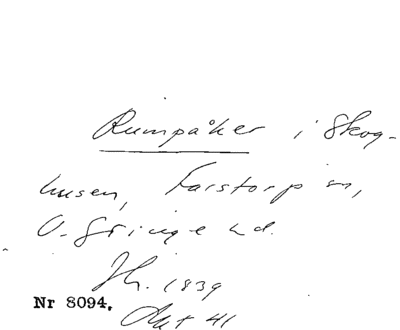 Rumpåker i Skog-
husen, Farstorp sn,
V. Göinge hd.
Sh. 1839
Nr 8094.
Akt 41